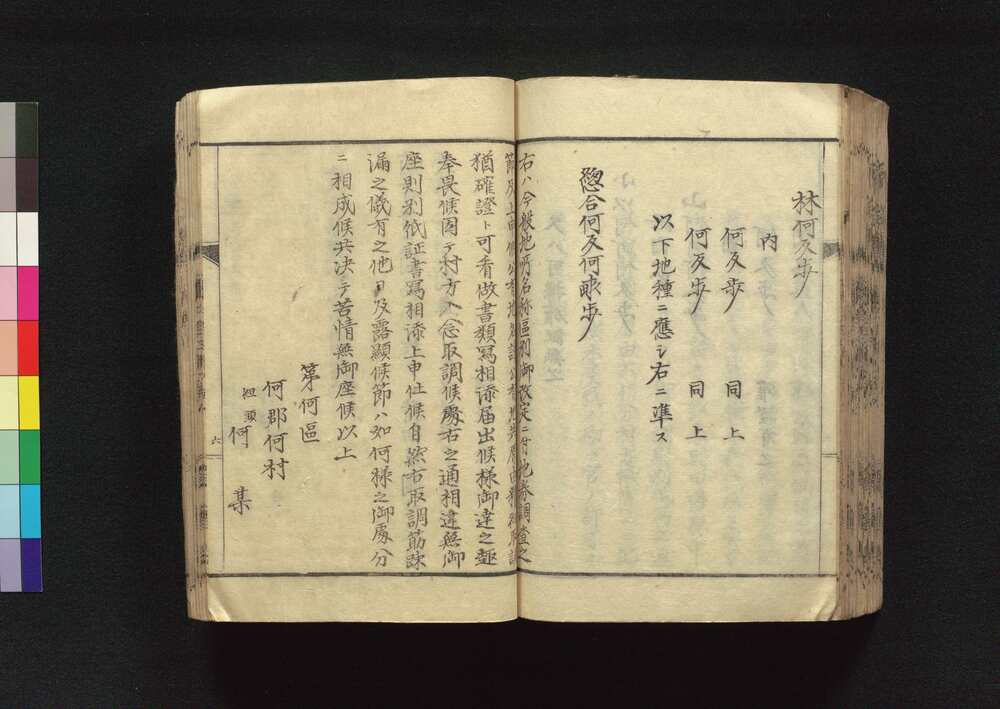 林何反歩
内
何反歩 同上
何反歩 同上
以下地種ニ應シ右ニ準ス
惣合何反何畝歩
右ハ今般地所名称區別御改定ニ付地券調査之
猶確證ト可看做書類寫相添届出候様御達之趣
奉畏候因テ村方入念取調候處右之通相違無御
座則別紙証書寫相添上申仕候自然右取調筋疎
漏之儀有之他日及露顯候節ハ如何様之御處分
ニ相成候共决テ苦情無御座候以上
第何區
何郡何村
何某
六